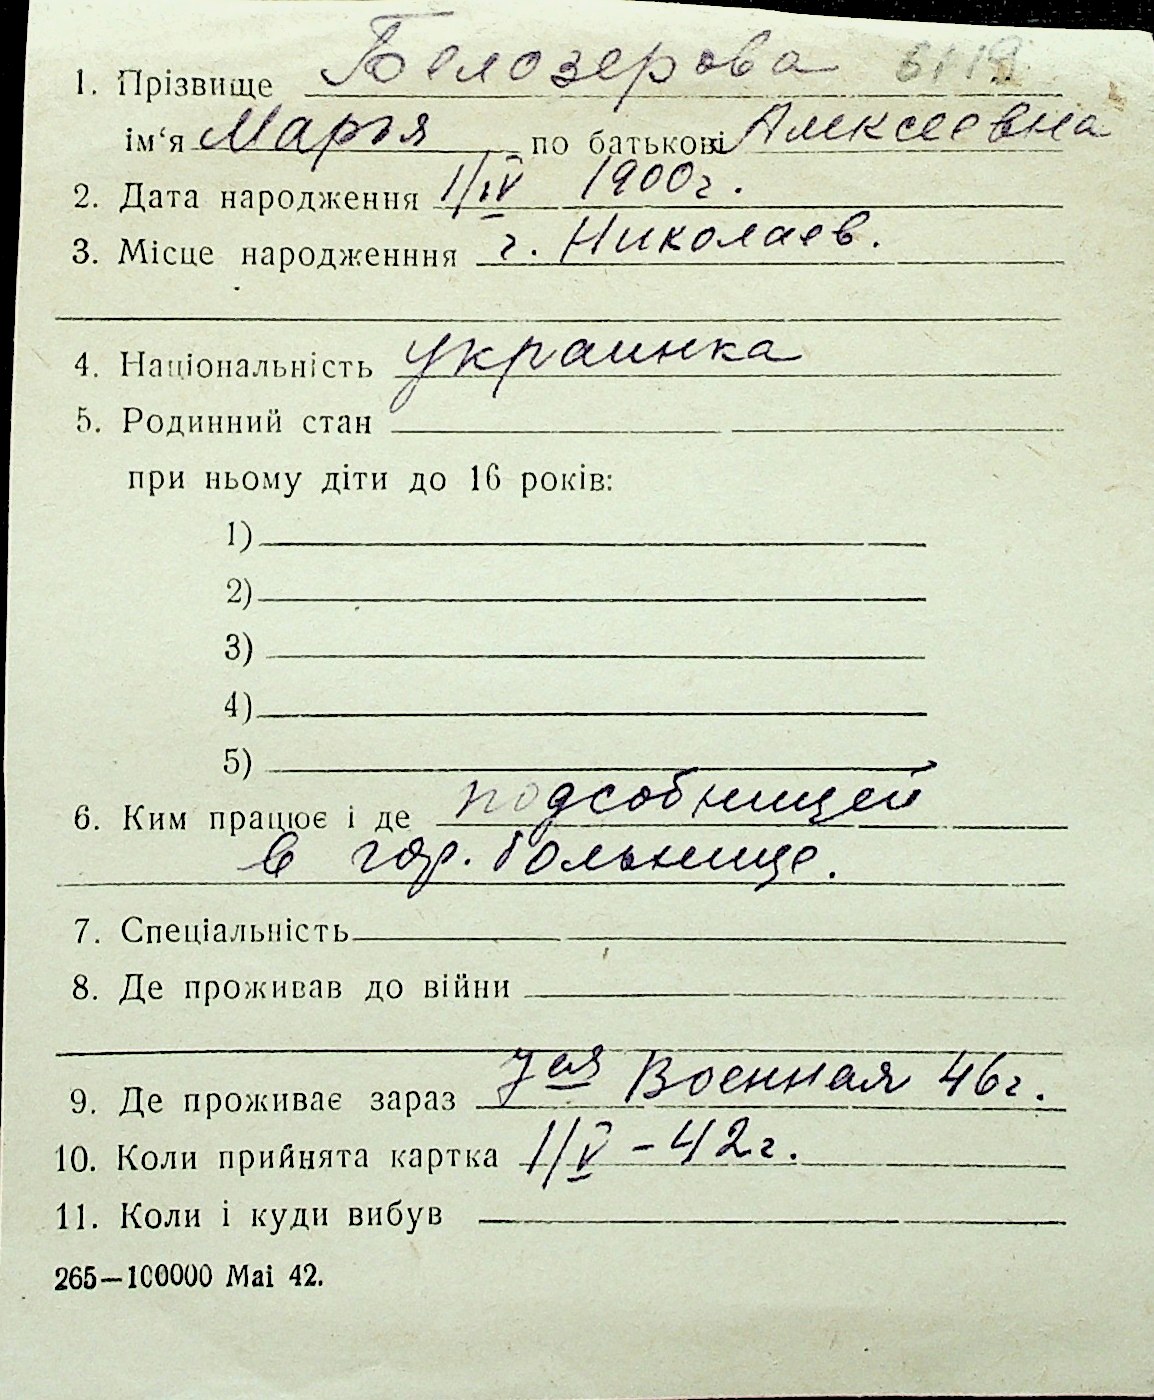 1. Прізвище Белозерова 6119
ім‘я Марья по батькові Алексеевна
2. Дата народження 1/IV 1900г.
3. Місце народженння г. Николаев.
4. Національність украинка
5. Родинний стан
при ньому діти до 16 років:
1)
2)
3)
4)
5)
6. Ким працює і де подсобницей
в гор. больнице.
7. Спеціальність
8. Де проживав до війни
9. Де проживає зараз 7ая Военная 46г.
10. Коли прийнята картка 1/V – 42г.
11. Коли і куди вибув
265—100000 Mai 42.